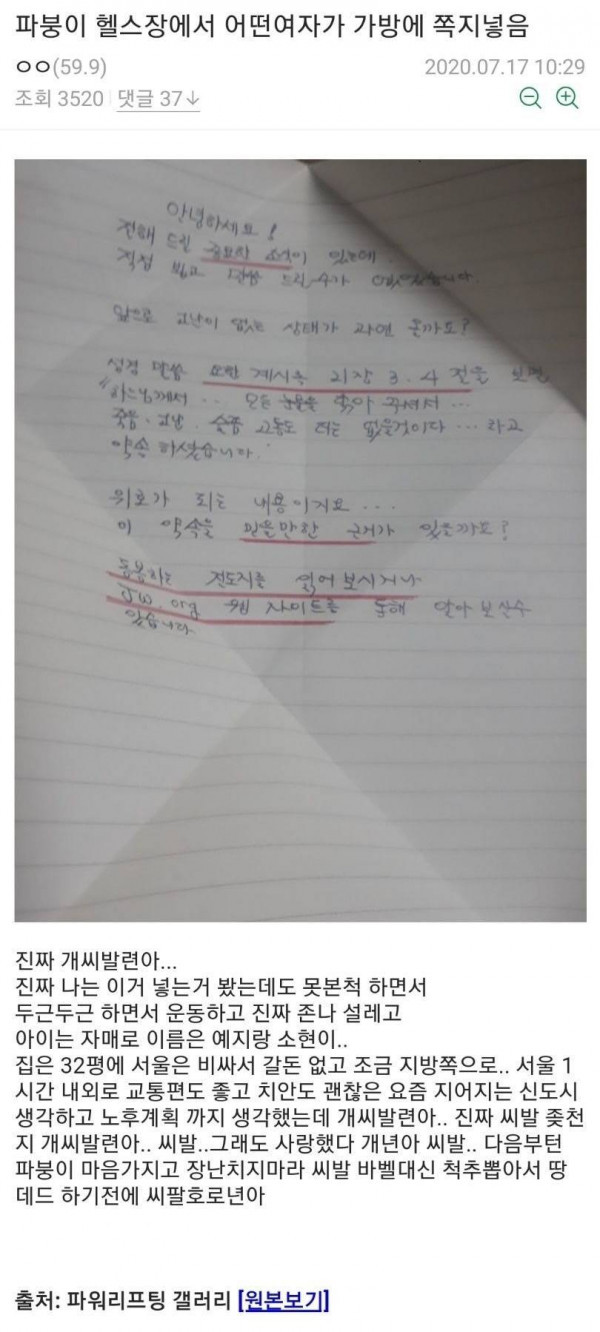 파붕이 헬스장에서 어떤여자가 가방에 쪽지넣음
ㅇㅇ(59.9)
2020.07.17 10:29
조회 3520
댓글 37↓
안녕하세요!
전해 드릴 중요한 소식이 있는데
직접 뵙고 말씀 드릴 수가 없었습니다.
앞으로 고난이 없는 상태가 과연 올까요?
성경 말씀 요한 계시록 21장 3. 4 절을 보면
"하느님께서 ... 모든 눈물을 닦아 주셔서 ...
죽음. 고난. 슬픔 고통도 더는 없을것이다 ... 라고
약속 하셨습니다.
위로가 되는 내용이지요 ...
이 약속을 믿을만한 근거가 있을까요?
동봉하는 전도지를 읽어 보시거나
JW.org 웹 사이트를 통해 알아 보실수
있습니다
진짜 개씨발련아...
진짜 나는 이거 넣는거 봤는데도 못본척 하면서
두근두근 하면서 운동하고 진짜 존나 설레고
아이는 자매로 이름은 예지랑 소현이..
집은 32평에 서울은 비싸서 갈돈 없고 조금 지방쪽으로.. 서울 1
시간 내외로 교통편도 좋고 치안도 괜찮은 요즘 지어지는 신도시
생각하고 노후계획 까지 생각했는데 개씨발련아.. 진짜 씨발 좆천
지 개씨발련아.. 씨발..그래도 사랑했다 개년아 씨발.. 다음부턴
파붕이 마음가지고 장난치지마라 씨발 바벨대신 척추뽑아서 땅
데드 하기전에 씨팔호로년아
출처: 파워리프팅 갤러리 [원본보기]